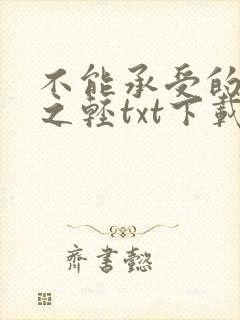 不能承受的
之轻txt下载
齐书懿